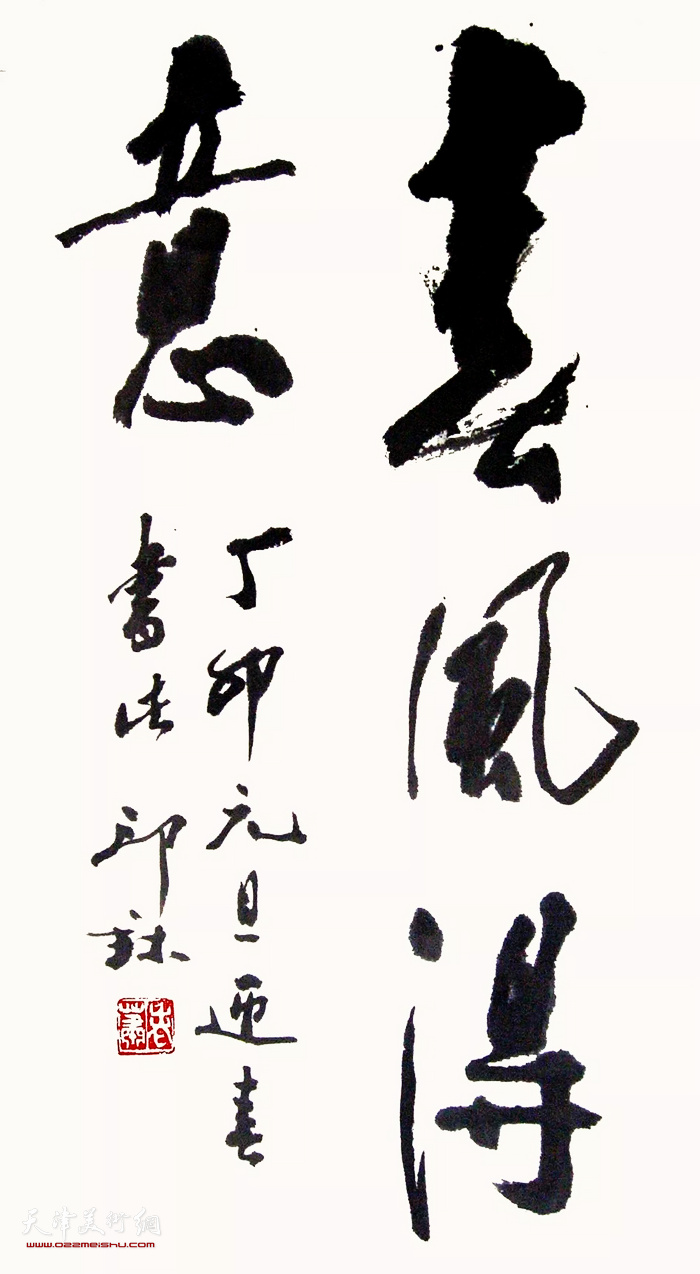 春風得
意
丁卯元旦迎春
書此 印鉌
老蕭
天津美術網
www.022meishu.com